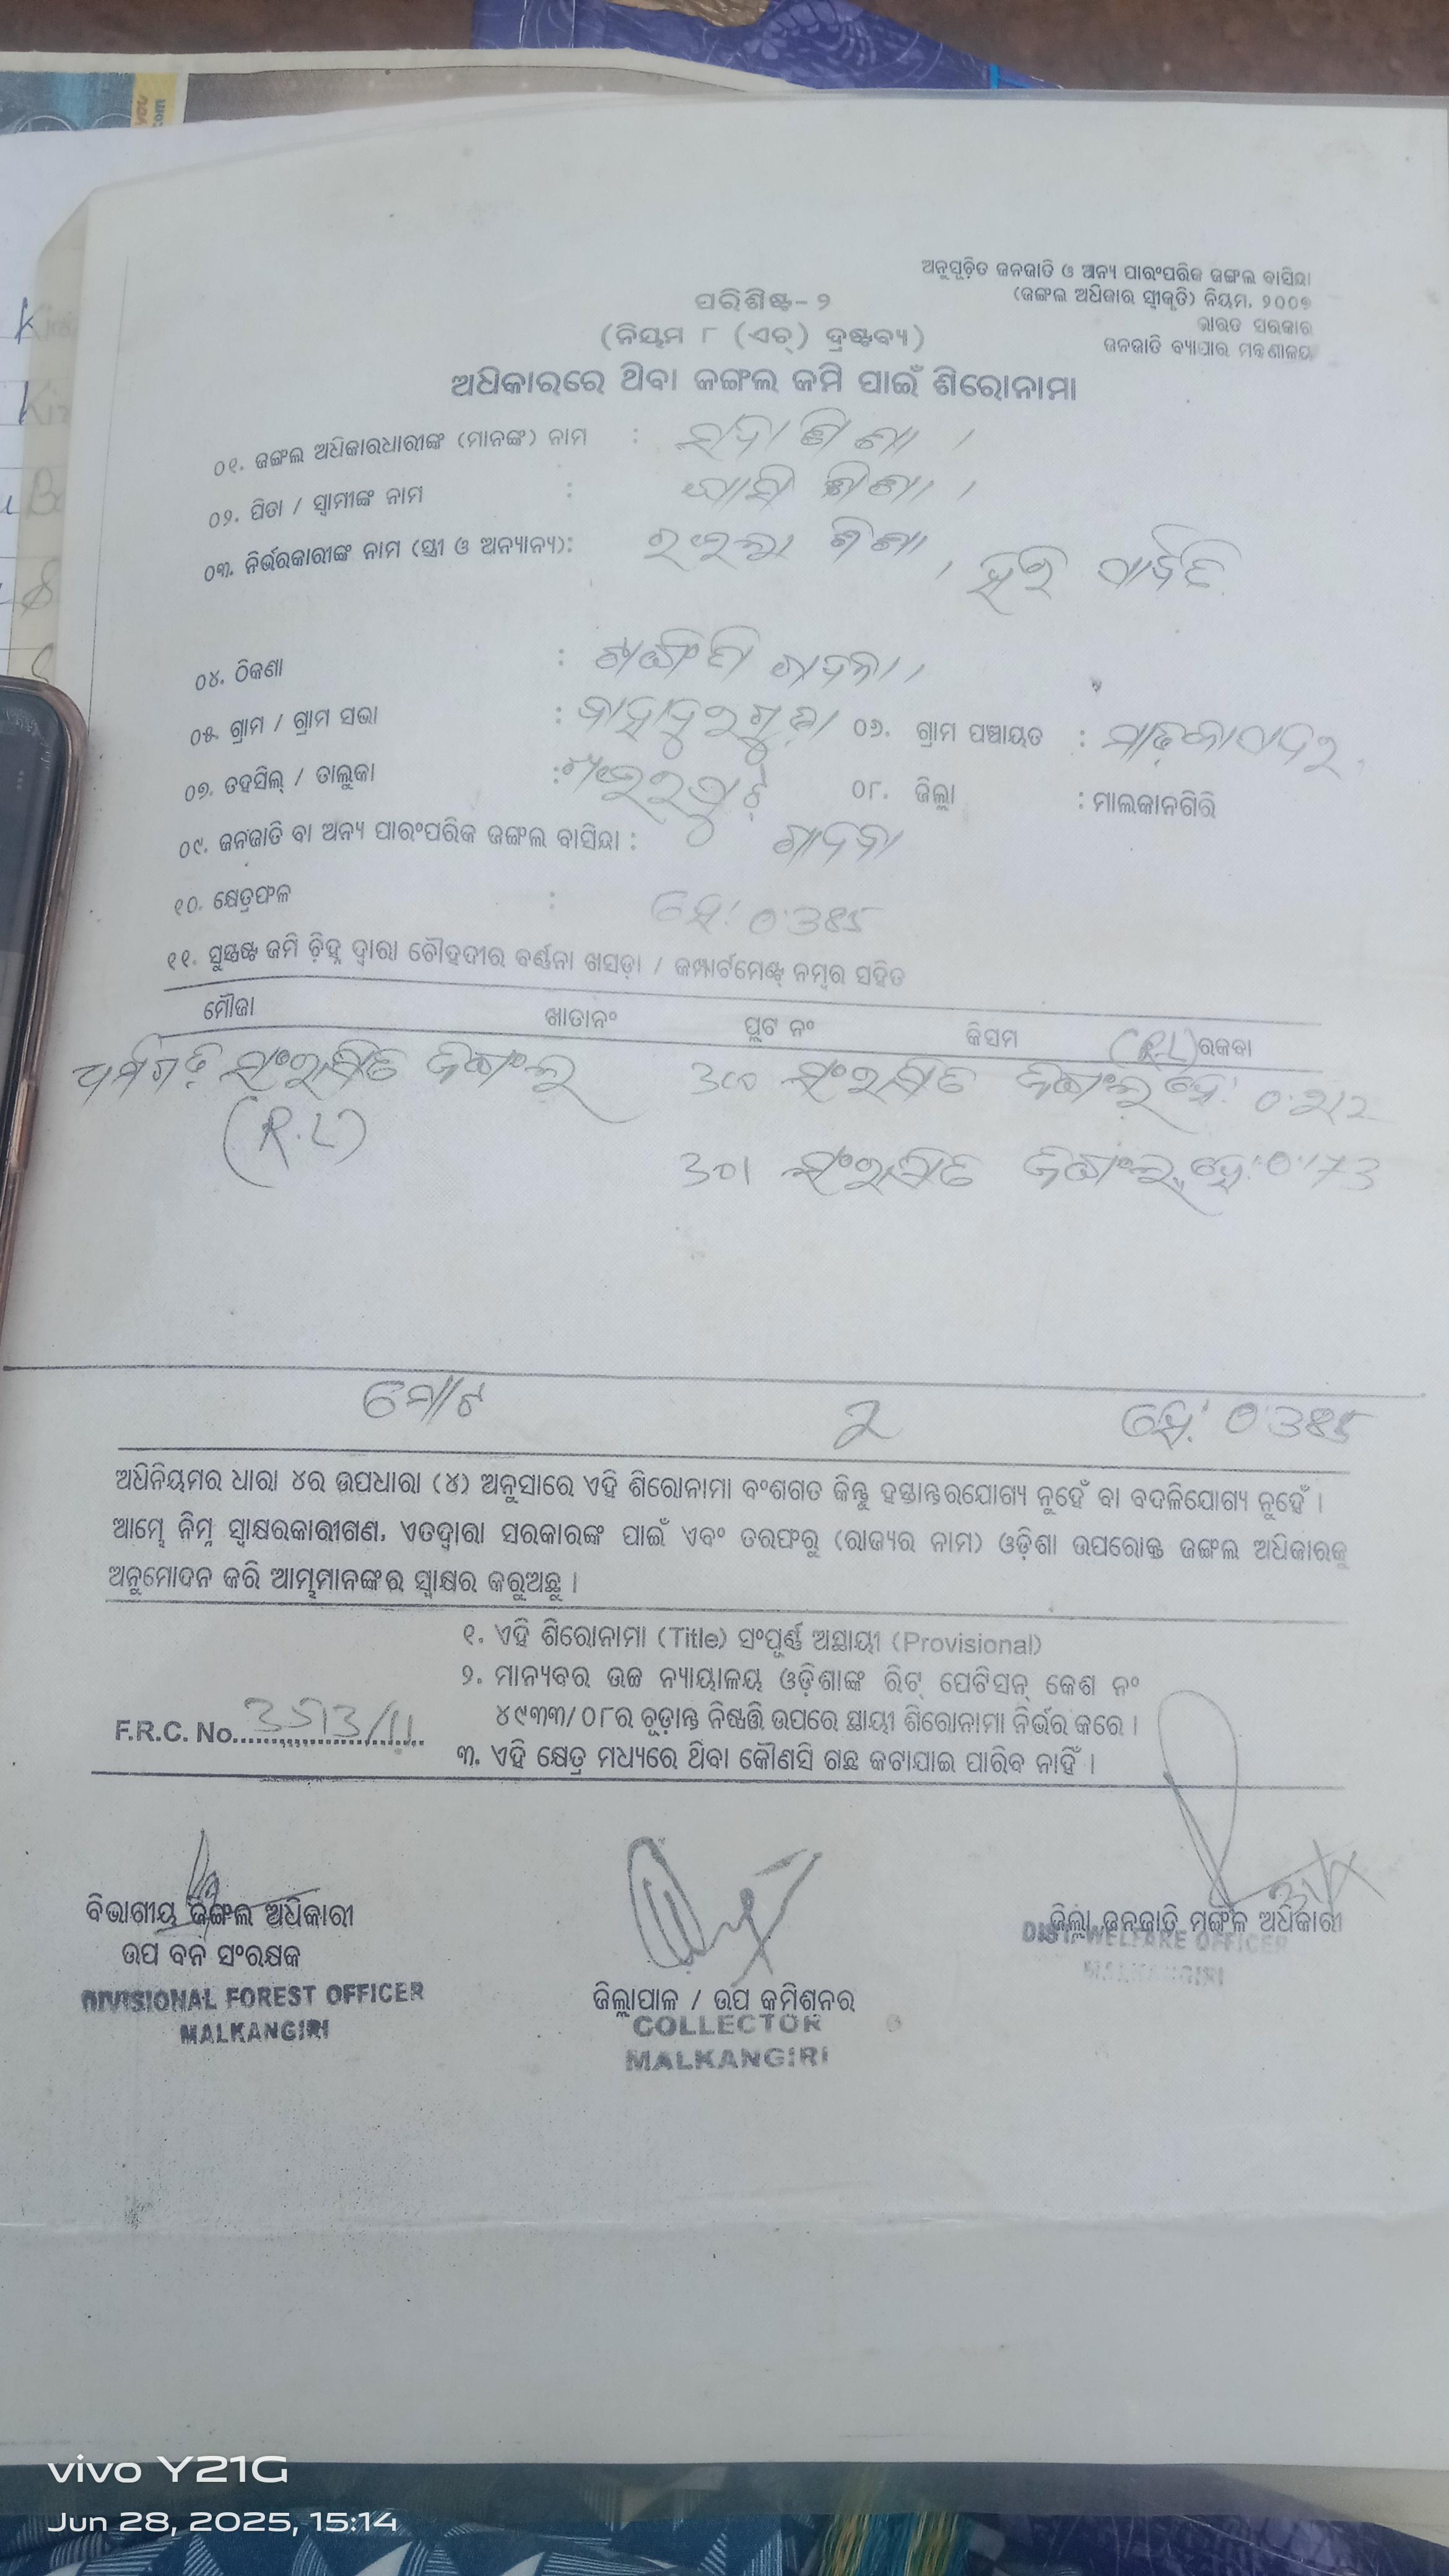 ଅନୁସୂଚିତ ଜନଜାତି ଓ ଅନ୍ୟ ପାରଂପରିକ ଜଙ୍ଗଲ ବାସିନ୍ଦା
(ଜଙ୍ଗଲ ଅଧିକାର ସ୍ୱୀକୃତି) ନିୟମ, ୨୦୦୭
ଭାରତ ସରକାର
ଜନଜାତି ବ୍ୟାପାର ମନ୍ତ୍ରଣାଳୟ
ପରିଶିଷ୍ଟ- ୨
(ନିୟମ ୮ (ଏଚ୍) ଦ୍ରଷ୍ଟବ୍ୟ)
ଅଧିକାରରେ ଥିବା ଜଙ୍ଗଲ ଜମି ପାଇଁ ଶିରୋନାମା
୦୧. ଜଙ୍ଗଲ ଅଧିକାରଧାରୀଙ୍କ (ମାନଙ୍କ) ନାମ :
୦୨. ପିତା / ସ୍ୱାମୀଙ୍କ ନାମ :
୦୩. ନିର୍ଭରକାରୀଙ୍କ ନାମ (ସ୍ତ୍ରୀ ଓ ଅନ୍ୟାନ୍ୟ):
୦୪. ଠିକଣା :
୦୫. ଗ୍ରାମ / ଗ୍ରାମ ସଭା : ୦୬. ଗ୍ରାମ ପଞ୍ଚାୟତ :
୦୭. ତହସିଲ୍ / ତାଲୁକା : ୦୮. ଜିଲ୍ଲା : ମାଲକାନଗିରି
୦୯. ଜନଜାତି ବା ଅନ୍ୟ ପାରଂପରିକ ଜଙ୍ଗଲ ବାସିନ୍ଦା :
୧୦. କ୍ଷେତ୍ରଫଳ : ହେ: 0.385
୧୧. ସୁସ୍ପଷ୍ଟ ଜମି ଚିହ୍ନ ଦ୍ୱାରା ଚୌହଦୀର ବର୍ଣ୍ଣନା ଖସଡ଼ା / କମ୍ପାର୍ଟମେଣ୍ଟ ନମ୍ବର ସହିତ
ମୌଜା ଖାତାନଂ ପ୍ଲଟ ନଂ କିସମ (R.L) ରକବା
ସଂରକ୍ଷିତ ଜଙ୍ଗଲ 300 ସଂରକ୍ଷିତ ଜଙ୍ଗଲ ହେ: 0.212
(R.L)
301 ସଂରକ୍ଷିତ ଜଙ୍ଗଲ ହେ: 0.173
ମୋଟ 2 ହେ: 0.385
ଅଧିନିୟମର ଧାରା ୪ର ଉପଧାରା (୪) ଅନୁସାରେ ଏହି ଶିରୋନାମା ବଂଶଗତ କିନ୍ତୁ ହସ୍ତାନ୍ତରଯୋଗ୍ୟ ନୁହେଁ ବା ବଦଳିଯୋଗ୍ୟ ନୁହେଁ ।
ଆମ୍ଭେ ନିମ୍ନ ସ୍ୱାକ୍ଷରକାରୀଗଣ, ଏତଦ୍ୱାରା ସରକାରଙ୍କ ପାଇଁ ଏବଂ ତରଫରୁ (ରାଜ୍ୟର ନାମ) ଓଡ଼ିଶା ଉପରୋକ୍ତ ଜଙ୍ଗଲ ଅଧିକାରକୁ
ଅନୁମୋଦନ କରି ଆମ୍ଭମାନଙ୍କର ସ୍ୱାକ୍ଷର କରୁଅଛୁ ।
୧. ଏହି ଶିରୋନାମା (Title) ସଂପୂର୍ଣ୍ଣ ଅସ୍ଥାୟୀ (Provisional)
୨. ମାନ୍ୟବର ଉଚ୍ଚ ନ୍ୟାୟାଳୟ ଓଡ଼ିଶାଙ୍କ ରିଟ୍ ପେଟିସନ୍ କେଶ ନଂ
୪୯୩୩/୦୮ର ଚୂଡ଼ାନ୍ତ ନିଷ୍ପତ୍ତି ଉପରେ ସ୍ଥାୟୀ ଶିରୋନାମା ନିର୍ଭର କରେ ।
F.R.C. No.
୩. ଏହି କ୍ଷେତ୍ର ମଧ୍ୟରେ ଥିବା କୌଣସି ଗଛ କଟାଯାଇ ପାରିବ ନାହିଁ ।
ବିଭାଗୀୟ ଜଙ୍ଗଲ ଅଧିକାରୀ
ଉପ ବନ ସଂରକ୍ଷକ
DIVISIONAL FOREST OFFICER
MALKANGIRI
ଜିଲ୍ଲାପାଳ / ଉପ କମିଶନର
COLLECTOR
MALKANGIRI
ଜିଲ୍ଲା ଜନଜାତି ମଙ୍ଗଳ ଅଧିକାରୀ
DIST. WELFARE OFFICER
MALKANGIRI
vivo Y21G
Jun 28, 2025, 15:14